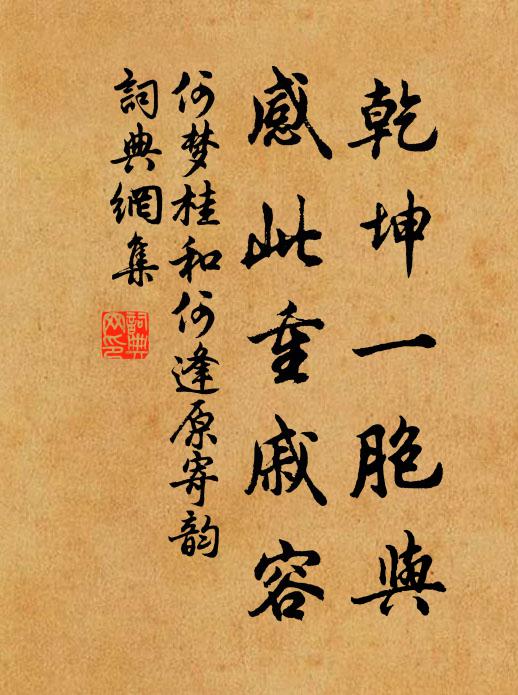 乾坤一胞與
感此重戚容
何梦桂和何逢原寄韵
詞典網集
詞典網印